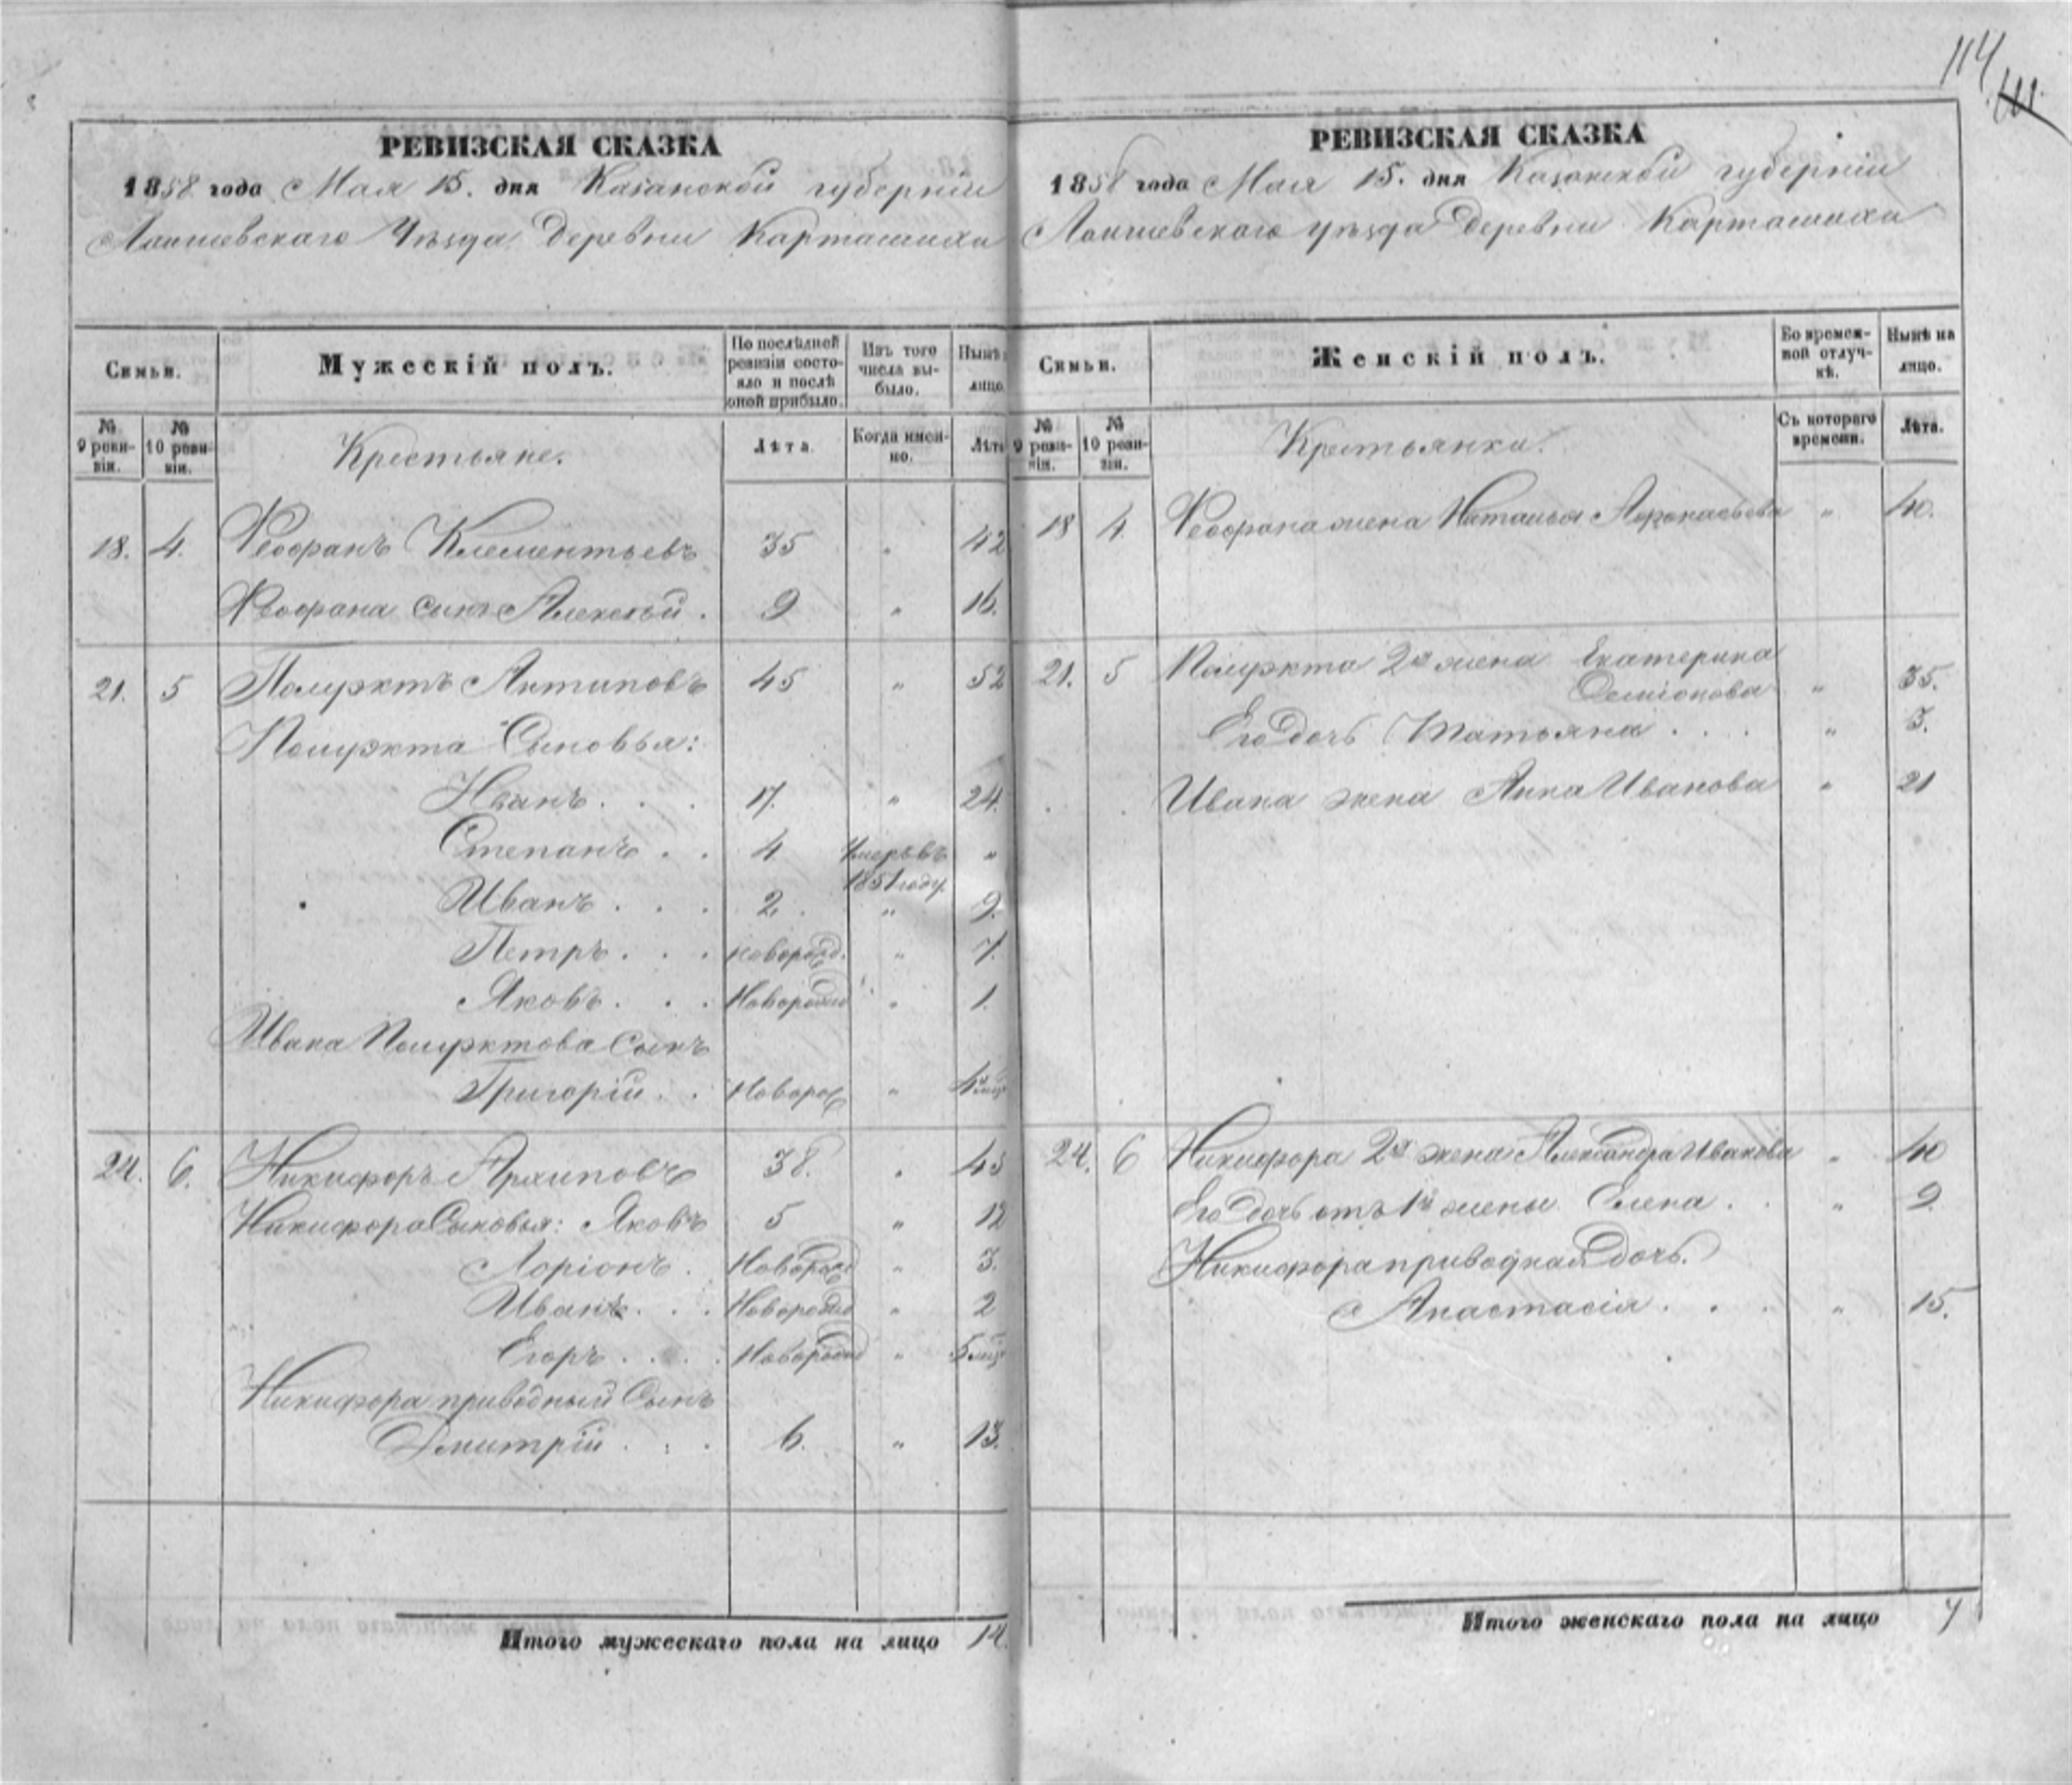 114
111
РЕВИЗСКАЯ СКАЗКА
1858 года Мая 15. дня Казанской губерніи
Лаишевскаго Уѣзда Деревни Карташихи
Семьи.
Мужескій полъ.
По послѣдней ревизіи состояло и послѣ оной прибыло.
Изъ того числа выбыло.
Нынѣ лицо.
№ 9 ревизіи.
№ 10 ревизіи.
Крестьяне.
Лѣта.
Когда именно.
Лѣта
18. 4. Ѳеофанъ Клементьевъ 35 „ 42
Ѳеофана сынъ Алексѣй. 9 „ 16.
21. 5 Полуэктъ Антиповъ 45 „ 52
Полуэкта Сыновья:
Иванъ . . . 17. „ 24.
Степанъ . . 4 Умеръ въ 1851 году. „
Иванъ . . . 2. „ 9.
Петръ . . . новорожд. „ 7.
Яковъ . . . Новорожд „ 1.
Ивана Полуэктова Сынъ
Григорій . . Новорож „ 4 мѣс
24. 6. Никифоръ Архиповъ 38. „ 45
Никифора Сыновья: Яковъ 5 „ 12
Ларіонъ . Новорожд „ 3.
Иванъ . . . Новорожд „ 2
Егоръ . . . . Новорожд „ 5 мѣс
Никифора приводный Сынъ
Дмитрій . . . 6. „ 13.
Итого мужескаго пола на лицо 14.
РЕВИЗСКАЯ СКАЗКА
1858 года Мая 15. дня Казанской губерніи
Лаишевскаго уѣзда Деревни Карташихи
Семьи.
Женскій полъ.
Во временной отлучкѣ.
Нынѣ на лицо.
№ 9 ревизіи.
№ 10 ревизіи.
Крестьянки.
Съ котораго времени.
Лѣта.
18 4. Ѳеофана жена Наталья „ 40.
21. 5 Полуэкта 2я жена Екатерина
Семіонова „ 35.
Его дочь Татьяна . . . „ 3.
Ивана жена Анна Иванова „ 21
24. 6 Никифора 2я жена Александра Иванова „ 40
Его дочь отъ 1й жены Елена . . „ 9.
Никифора приводная дочь.
Анастасія . . . „ 15.
Итого женскаго пола на лицо 7